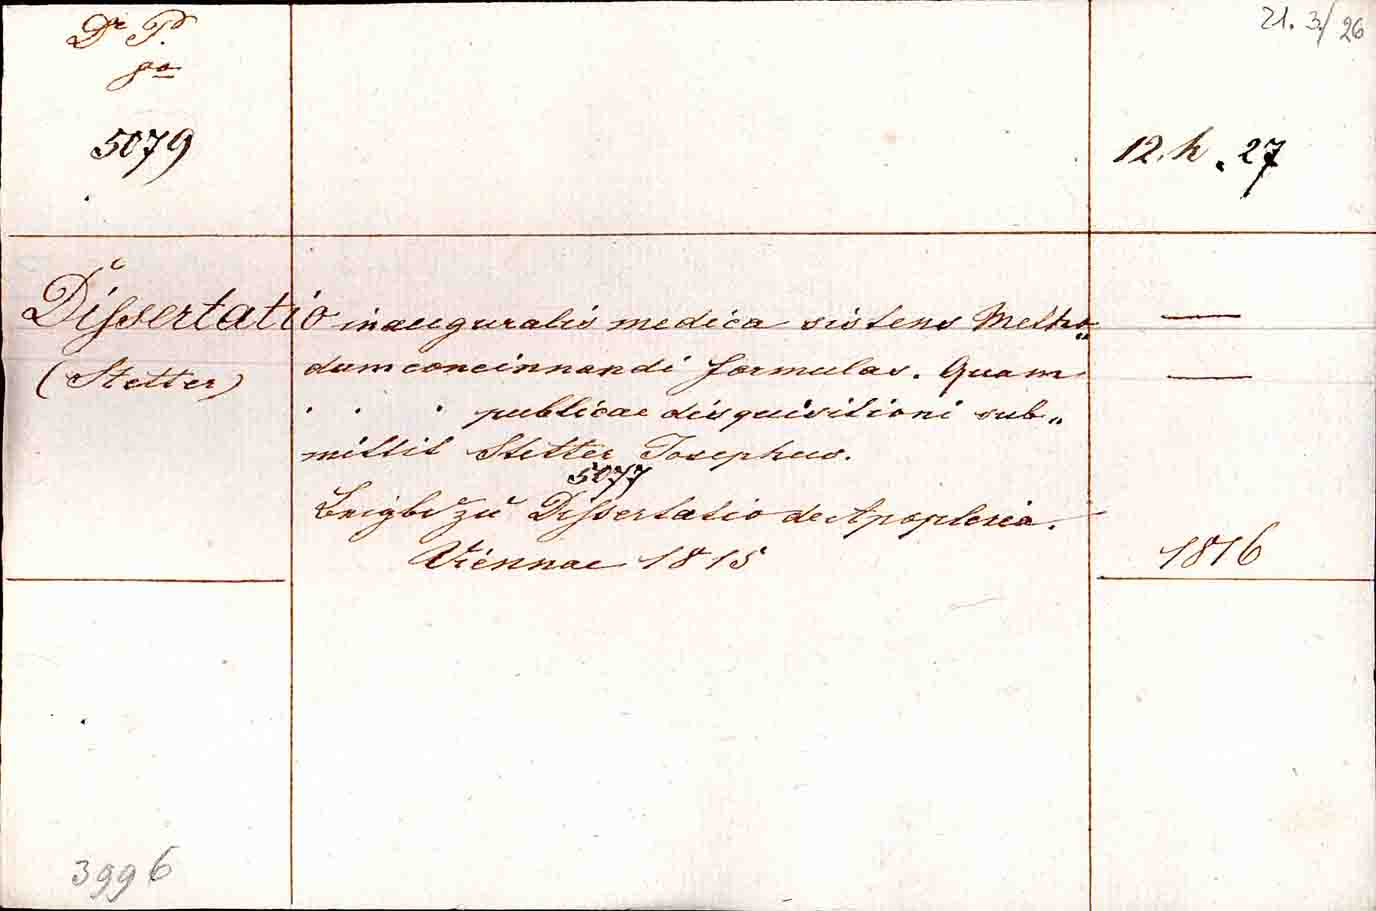 Dr P.
8o
5079
21. 3/26
12. h. 27
Dissertatio inauguralis medica sistens Metho„
(Stetter)
dum concinnandi formulas. Quam
. . . publicae disquisitioni sub„
mittit Stetter Josephus.
5077
zu Dissertatio de Apoplexia.
Viennae 1815
—
—
1816
3996